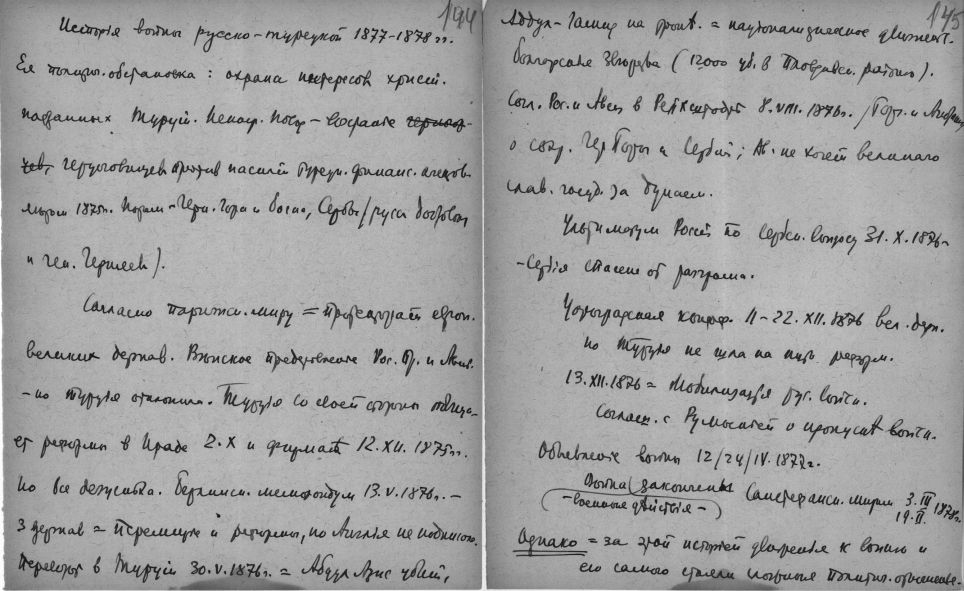 194
Исторія войны русско-турецкой 1877-1878 гг.
Ея политич. обстановка: охрана интересов христ.
подданных Турціи. Непоср. повод - возстаніе
герцоговинцев против насилій турецк. финанс. агентов
лѣтом 1875 г. Потом - Черн. Гора и Босна, Сербы (русс. доброволцы
и ген. Черняев).
Согласно Парижск. миру = протекторат европ.
великих держав. Вѣнское представленіе Рос. Гр. и Авст.
- но Турція отклонила. Турція со своей стороны обѣща-
ет реформы в Ираде 2.X и фирманѣ 12.XII. 1875 г.
Но все безуспѣшно. Берлинск. меморандум 13.V.1876 г. -
3 держав = перемиріе и реформы, но Англія не подписала.
Переворот в Турціи 30.V.1876 г. = Абдул Азис убит,
145
Абдул-Гамид на тронѣ. = націоналистическое движеніе.
болгарскія звѣрства (12000 уб. в Пловдивск. районѣ).
Согл. Рос. и Авст. в Рейхштадтѣ 8.VIII.1876 г.
о сохр. Чер Горы и Сербіи; Ав. не хочет великаго
слав. госуд. за Дунаем.
Ультиматум Россіи по Сербск. вопросу 31.X.1876 г.
- Сербія спасена от разгрома.
Цареградская конфер. 11-22.XII.1876 вел. держ.
но Турція не шла на путь реформ.
13.XII.1876 = мобилизація рус. войск.
Соглаш. с Румыніей о пропускѣ войск.
Объявленіе войны 12/24/IV.1877 г.
Война закончена Санстефанск. миром 3.III 1878 г.
19.II.
- военныя дѣйствія -
Однако = за этой исторіей движенія к войнѣ и
его самого стояли сложныя политич. отношенія.